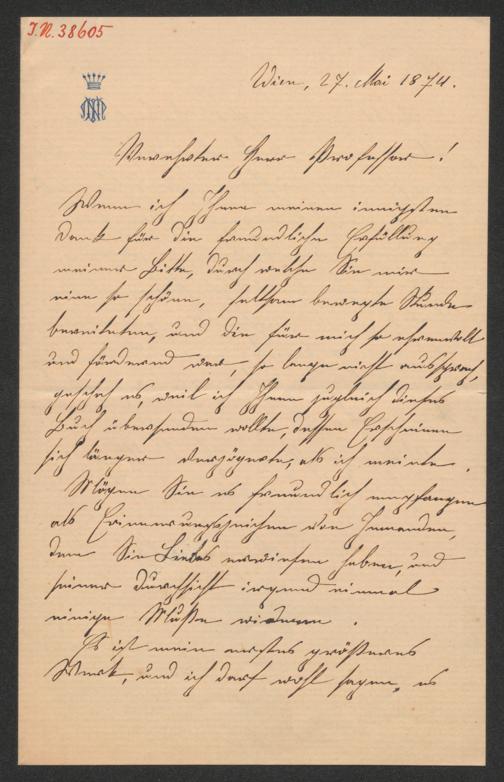 I.N. 38605
Wien, 27. Mai 1874.
Verehrter Herr Professor!
Wenn ich Ihnen meinen innigsten
Dank für die freundliche Erfüllung
meiner Bitte, durch welche Sie mir
eine so schöne, seltsam bewegte Stunde
bereiteten, und die für mich so ehrenvoll
und fördernd war, so lange nicht aussprach,
geschah es, weil ich Ihnen zugleich dieses
Buch übersenden wollte, dessen Erscheinen
sich länger verzögerte, als ich meinte.
Mögen Sie es freundlich empfangen
als Erinnerungszeichen von Jemanden,
dem Sie Liebes erwiesen haben, und
seiner Durchsicht irgend einmal
einige Muße widmen.
Es ist mein erstes größeres
Werk, und ich darf wohl sagen, es